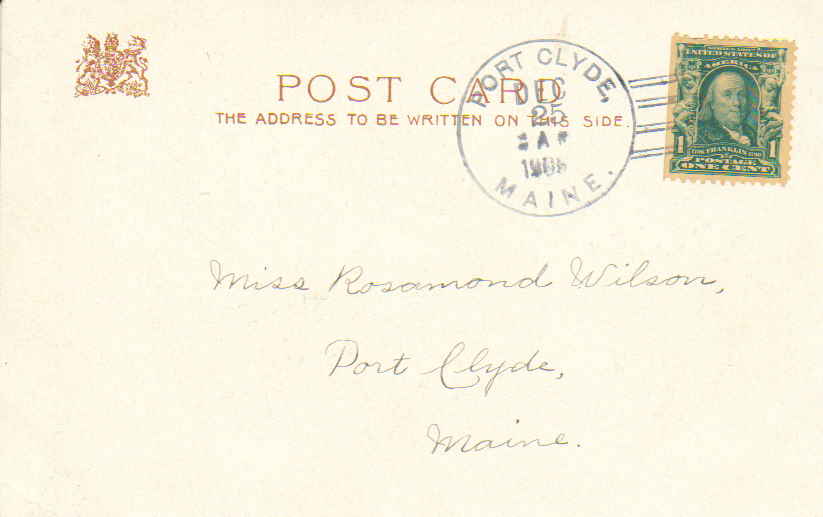 POST CARD
THE ADDRESS TO BE WRITTEN ON THIS SIDE.
PORT CLYDE,
DEC
25
A
MAINE.
SERIES 1902
UNITED STATES OF
AMERICA
1 FRANKLIN 1
POSTAGE
ONE CENT
Miss Rosamond Wilson,
Port Clyde,
Maine.